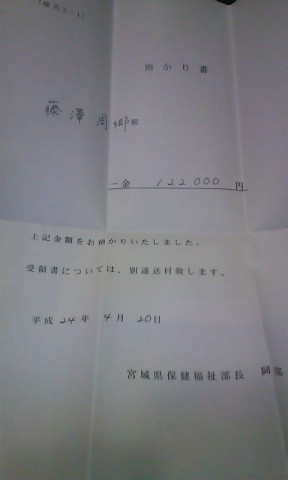 (様式3-1)
預かり書
藤澤周郷殿
一金 122000 円
上記金額をお預かりいたしました。
受領書については、別途送付致します。
平成 24 年 4 月 20 日
宮城県保健福祉部長 岡部